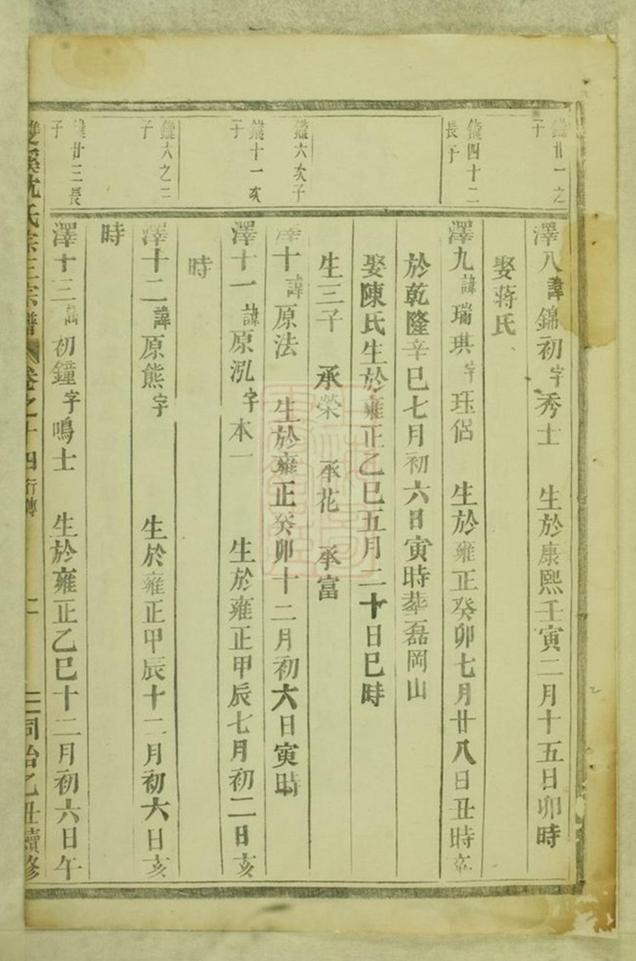 鐩廿一之
子
澤八諱錦初字秀士 生於康熙壬寅二月十五日卯時
娶蒋氏
鐩四十二
長子
澤九諱瑞琪字珏侶 生於雍正癸卯七月廿八日丑時卒
於乾隆辛巳七月初六日寅時塟磊岡山
娶陳氏生於雍正乙巳五月二十日巳時
生三子 承榮 承花 承富
鐩六次子
澤十諱原法 生於雍正癸卯十二月初六日寅時
鐩十一次
子
澤十一諱原泓字本一 生於雍正甲辰七月初二日亥
時
鐩六之三
子
澤十二諱原熊字 生於雍正甲辰十二月初六日亥
時
鐩廿三長
子
澤十三諱初鐘字鳴士 生於雍正乙巳十二月初六日午
雙溪沈氏宗譜 卷之十四 行傳 同治乙丑續修